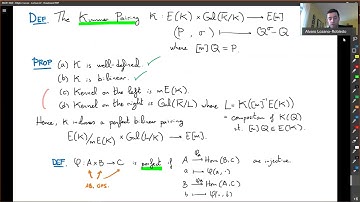 DEF. The Kummer Pairing K: E(K) × Gal(K̄/K) → E[m]
(P, σ) ⟼ Q^σ - Q
where [m]Q = P.
PROP (a) K is well-defined. ✓
(b) K is bilinear. ✓
(c) Kernel on the left is mE(K).
(d) Kernel on the right is Gal(K̄/L) where L = K([m]⁻¹E(K))
= compositum of K(Q)
st. [m]Q ∈ E(K).
Hence, K induces a perfect bilinear pairing
E(K)/mE(K) × Gal(L/K) → E[m].
DEF. φ: A×B → C is perfect if A → Hom(B,C) are injective
a ⟼ φ(a, ·)
AB. GPS.
B → Hom(A,C)
b ⟼ φ(·, b)
Alvaro Lozano-Robledo